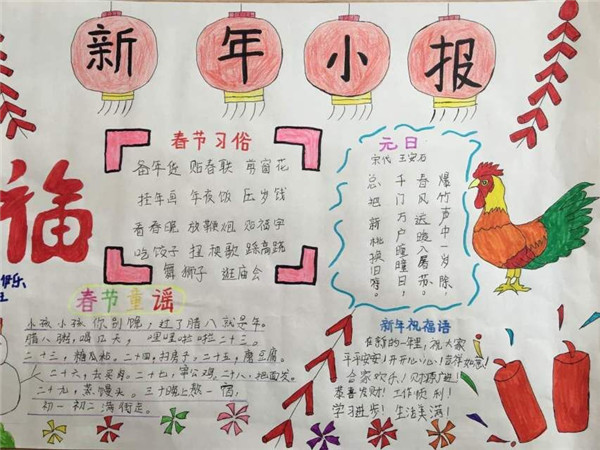 新年小报
福
春节习俗
备年货 贴春联 剪窗花
挂年画 年夜饭 压岁钱
看春晚 放鞭炮 贴福字
吃饺子 扭秧歌 踩高跷
舞狮子 逛庙会
元日
宋代 王安石
爆竹声中一岁除，
春风送暖入屠苏。
千门万户曈曈日，
总把新桃换旧符。
春节童谣
小孩小孩你别馋，过了腊八就是年。
腊八粥，喝几天，哩哩啦啦二十三。
二十三，糖瓜粘。二十四，扫房子，二十五，磨豆腐。
二十六，去买肉。二十七，宰公鸡，二十八，把面发。
二十九，蒸馒头。三十晚上熬一宿，
初一初二满街走。
新年祝福语
在新的一年里，祝大家
平平安安！开开心心！吉祥如意！
合家欢乐！财源广进！
恭喜发财！工作顺利！
学习进步！生活美满！